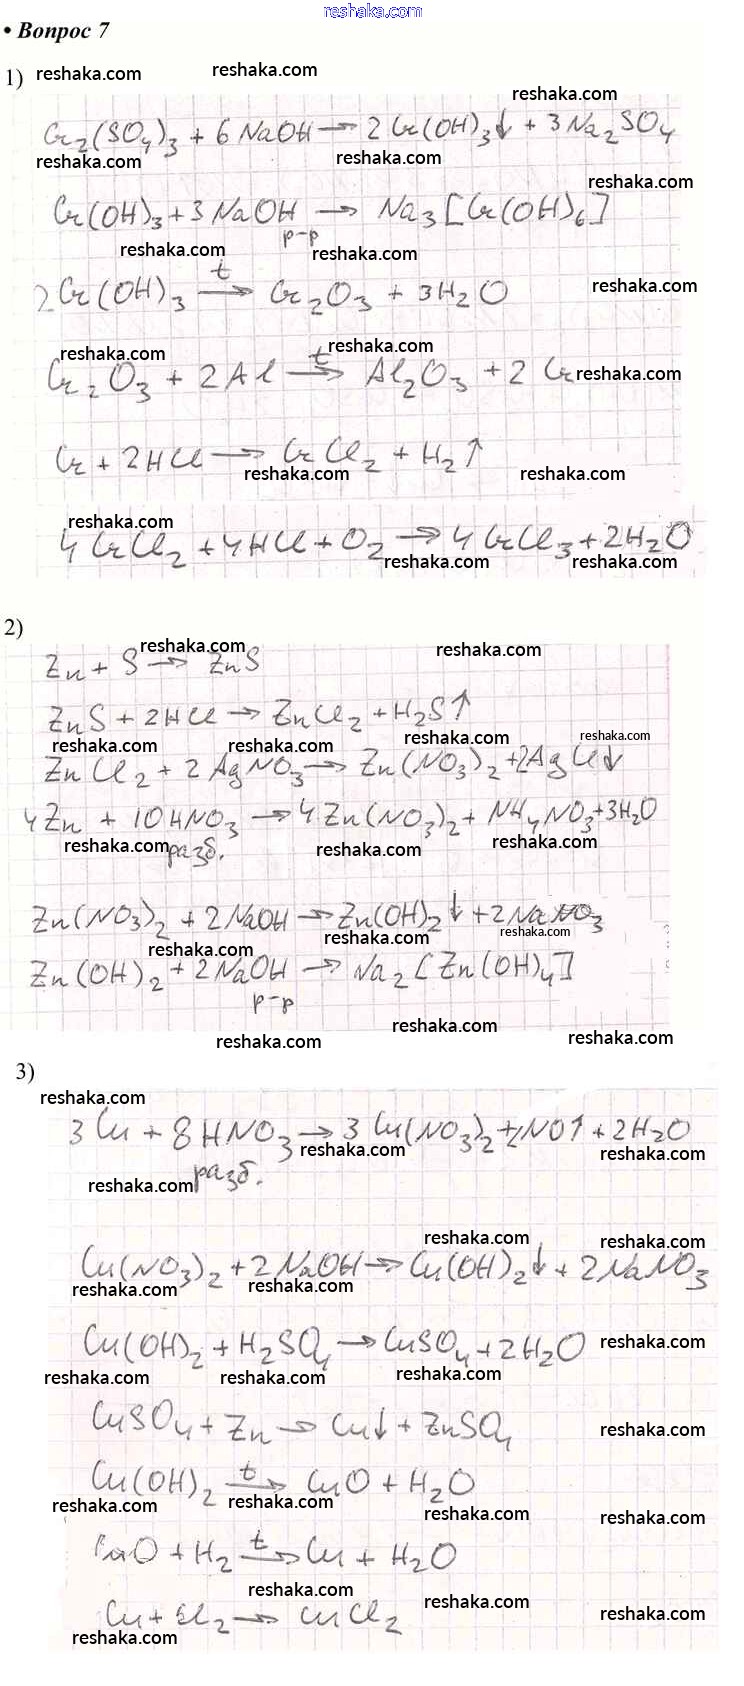 reshaka.com
• Вопрос 7
1) reshaka.com reshaka.com
reshaka.com
Cr₂(SO₄)₃ + 6 NaOH → 2 Cr(OH)₃↓ + 3 Na₂SO₄
reshaka.com reshaka.com
reshaka.com
Cr(OH)₃ + 3 NaOH → Na₃[Cr(OH)₆]
р-р
reshaka.com reshaka.com
t
2 Cr(OH)₃ → Cr₂O₃ + 3H₂O
reshaka.com
reshaka.com reshaka.com
t
Cr₂O₃ + 2Al → Al₂O₃ + 2 Cr
reshaka.com
Cr + 2HCl → CrCl₂ + H₂↑
reshaka.com reshaka.com
reshaka.com
4CrCl₂ + 4HCl + O₂ → 4CrCl₃ + 2H₂O
reshaka.com reshaka.com
2)
reshaka.com reshaka.com
Zn + S → ZnS
ZnS + 2HCl → ZnCl₂ + H₂S↑
reshaka.com reshaka.com reshaka.com reshaka.com
ZnCl₂ + 2AgNO₃ → Zn(NO₃)₂ + 2AgCl↓
4Zn + 10HNO₃ → 4Zn(NO₃)₂ + NH₄NO₃ + 3H₂O
разб.
reshaka.com reshaka.com reshaka.com
Zn(NO₃)₂ + 2NaOH → Zn(OH)₂↓ + 2NaNO₃
reshaka.com reshaka.com reshaka.com
Zn(OH)₂ + 2NaOH → Na₂[Zn(OH)₄]
р-р
reshaka.com reshaka.com reshaka.com
3)
reshaka.com
3Cu + 8HNO₃ → 3Cu(NO₃)₂ + 2NO↑ + 2H₂O
разб.
reshaka.com reshaka.com
reshaka.com
reshaka.com reshaka.com
Cu(NO₃)₂ + 2NaOH → Cu(OH)₂↓ + 2NaNO₃
reshaka.com reshaka.com
Cu(OH)₂ + H₂SO₄ → CuSO₄ + 2H₂O
reshaka.com
reshaka.com reshaka.com reshaka.com
CuSO₄ + Zn → Cu↓ + ZnSO₄
reshaka.com
t
Cu(OH)₂ → CuO + H₂O
reshaka.com reshaka.com reshaka.com reshaka.com
t
CuO + H₂ → Cu + H₂O
reshaka.com reshaka.com reshaka.com
Cu + Cl₂ → CuCl₂
reshaka.com